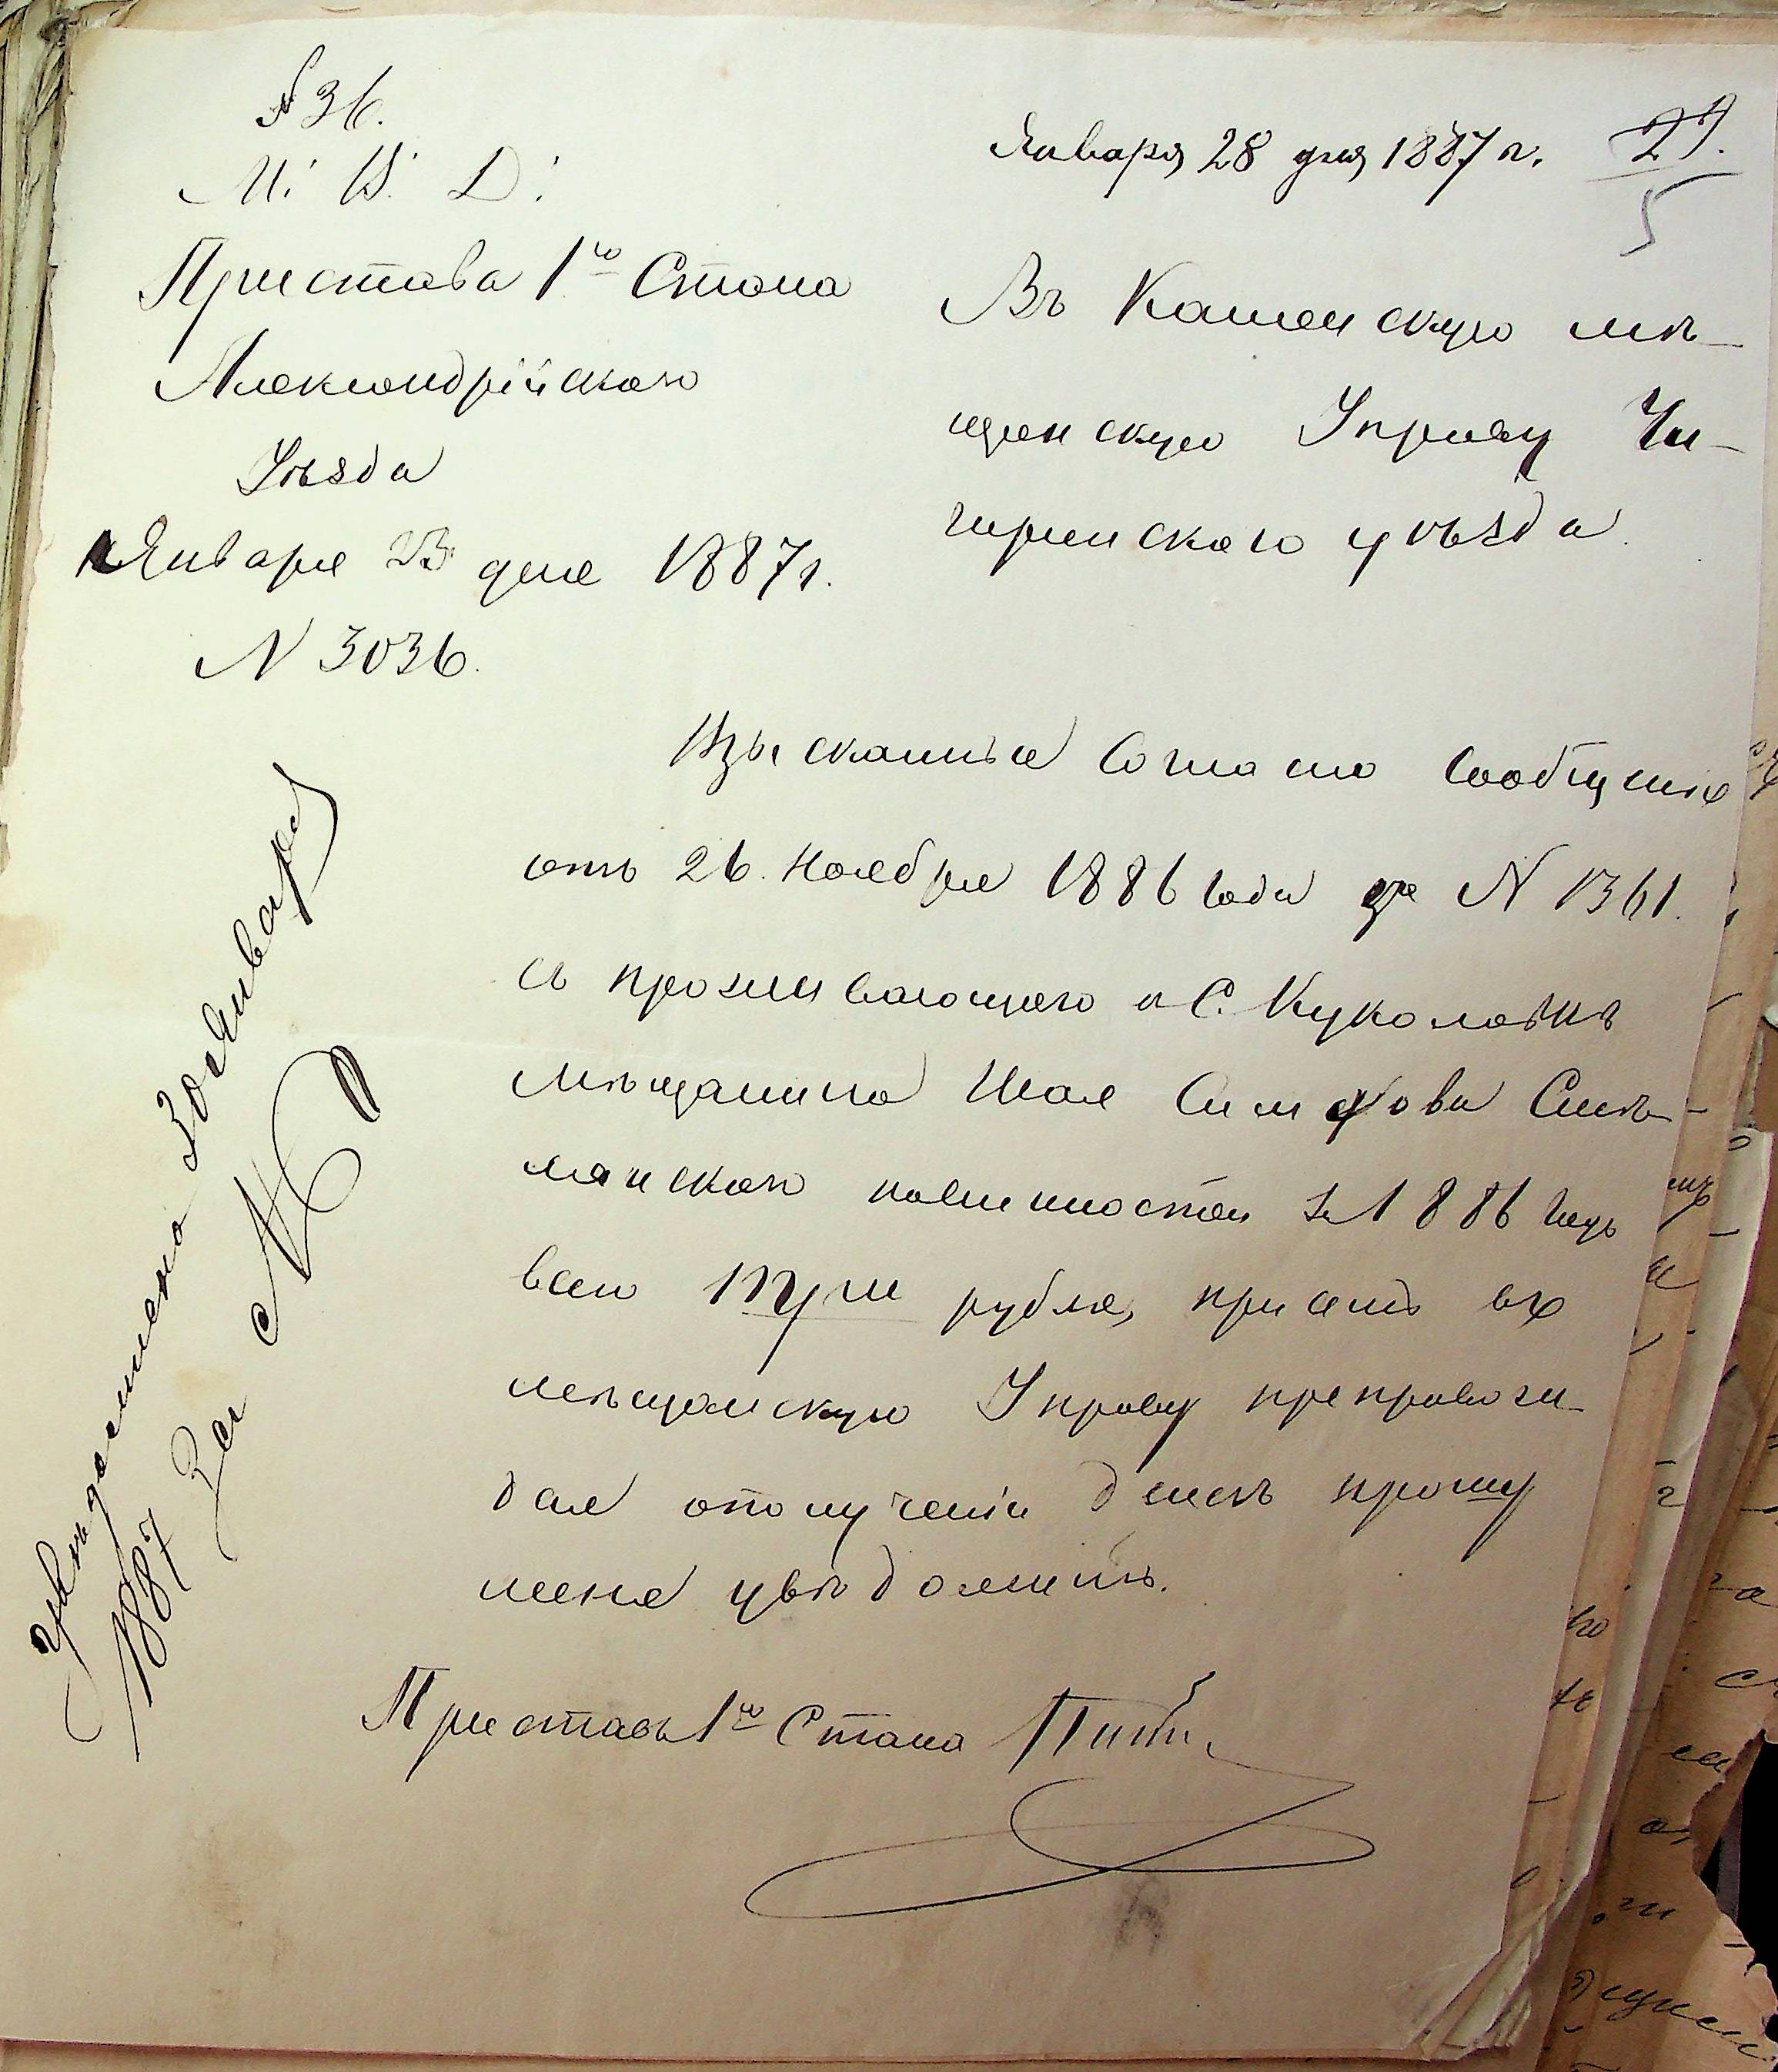 № 36.
М. В. Д.
Пристава 1го Стана
Александрійскаго
Уѣзда
Января 23 дня 1887 г.
N 3036.
Января 28 дня 1887 г.
27.
5
Въ Каменскую мѣ-
щанскую Управу Чи-
гиринскаго уѣзда.
Взысканные согласно сообщенія
отъ 26 Ноября 1886 года за N 1361.
съ проживающаго в С. Куколовкѣ
мѣщанина Шая Симхова Смѣ-
лянскаго повинностей за 1886 годъ
всего три рубля, при семъ въ
мѣщанскую Управу препровож-
дая о полученіи денегъ прошу
меня увѣдомить.
Приставъ 1го Стана
Увѣдомлено 30 Января
1887 За N